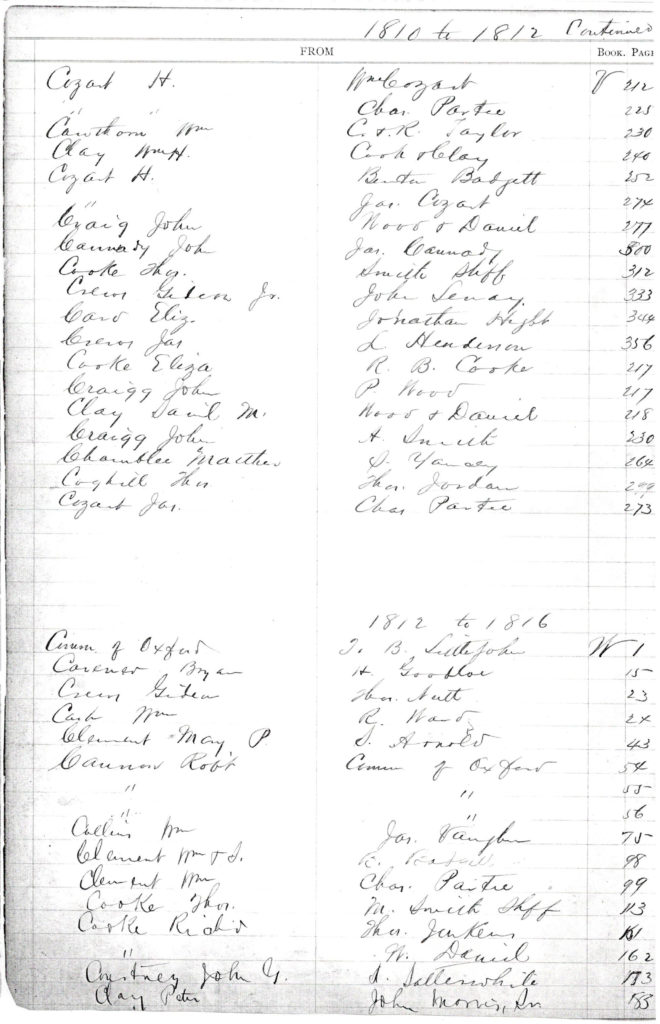 1810 to 1812 Continued
FROM BOOK. PAGE
Cozart H. Wm Cozart V 212
" Chas. Partee 225
Cawthorn Wm C. & R. Taylor 230
Clay Wm H. Cook & Clay 240
Cozart H. Benton Badgett 252
" Jas. Cozart 274
Craig John Wood & Daniel 277
Cannady John Jas. Cannady 300
Cooke Thos. Smith Shff 312
Crews Gideon Jr. John 333
Eliz. Jonathan Hight 344
Crews Jas L Henderson 356
Cooke Eliza R. B. Cooke 217
Craigg John P. Wood 217
Clay M. Wood & Daniel 218
Craigg John A. Smith 230
Chamblee S. Yancey 264
Coghill Thos. Thos. Jordan
Cozart Jas. Chas Partee 273
1812 to 1816
Comm. of Oxford T. B. Littlejohn W 1
Bryan H. Goodloe 15
Crews Gideon Thos. Nutt 23
Cash Wm R. Ward 24
Clement May P. S. Arnold 43
Cannon Robt Comm of Oxford 54
" " 55
" 56
Collins Wm Jas. Vaughn 75
Clement Wm & S. 98
Clement Wm Chas. Partee 99
Cooke Thos. M. Smith Shff 113
Cooke Richd Thos. Jenkins
" W. Daniel 162
Courtney John Y. Satterwhite 173
Clay Peter John Morris, Sr 183